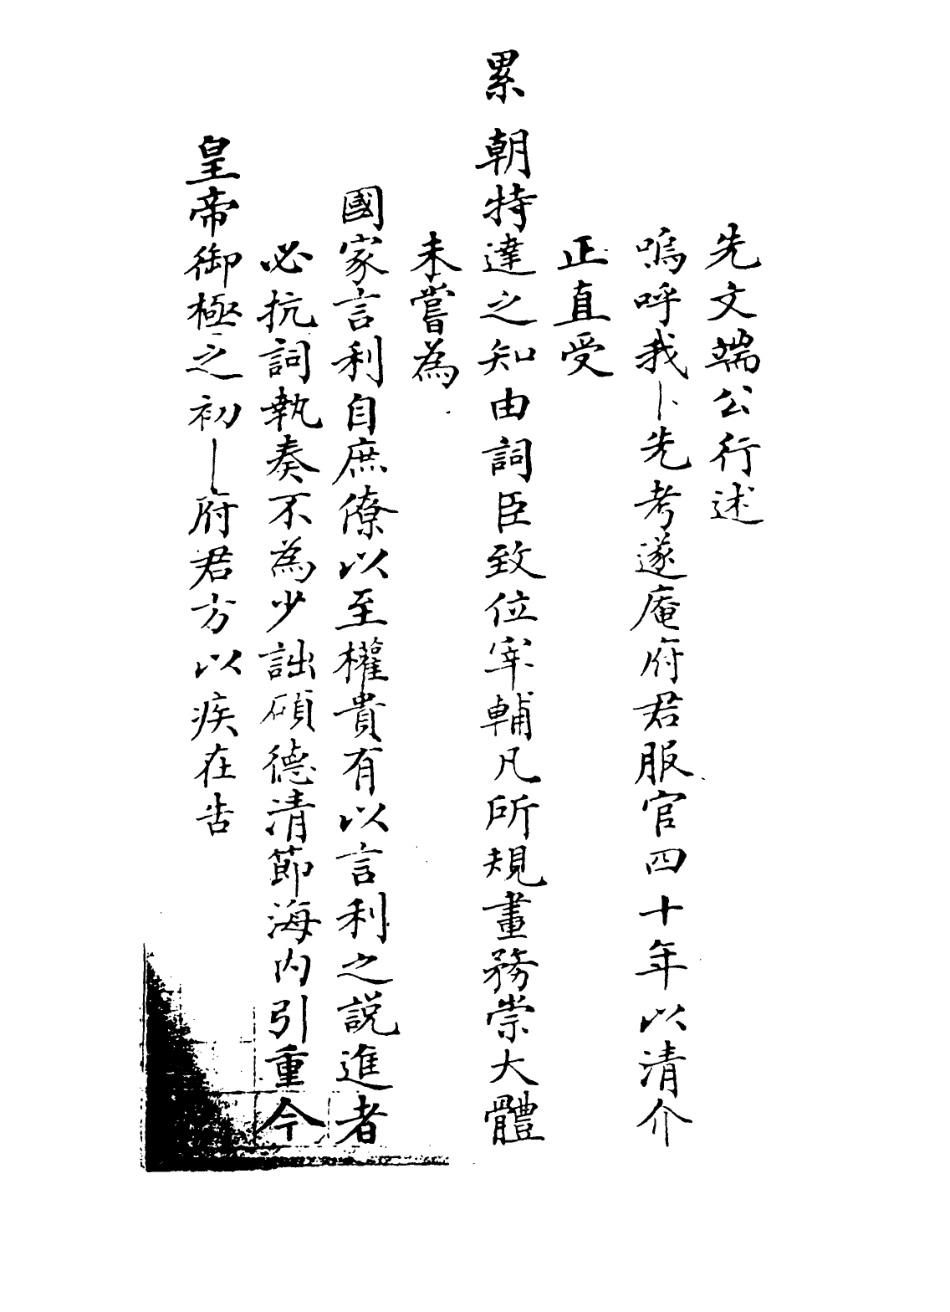 先文端公行述
嗚呼我先考遂庵府君服官四十年以清介
正直受
累朝特達之知由詞臣致位宰輔凡所規畫務崇大體
未嘗為
國家言利自庶僚以至權貴有以言利之説進者
必抗詞執奏不為少詘碩德清節海内引重今
皇帝御極之初府君方以疾在告